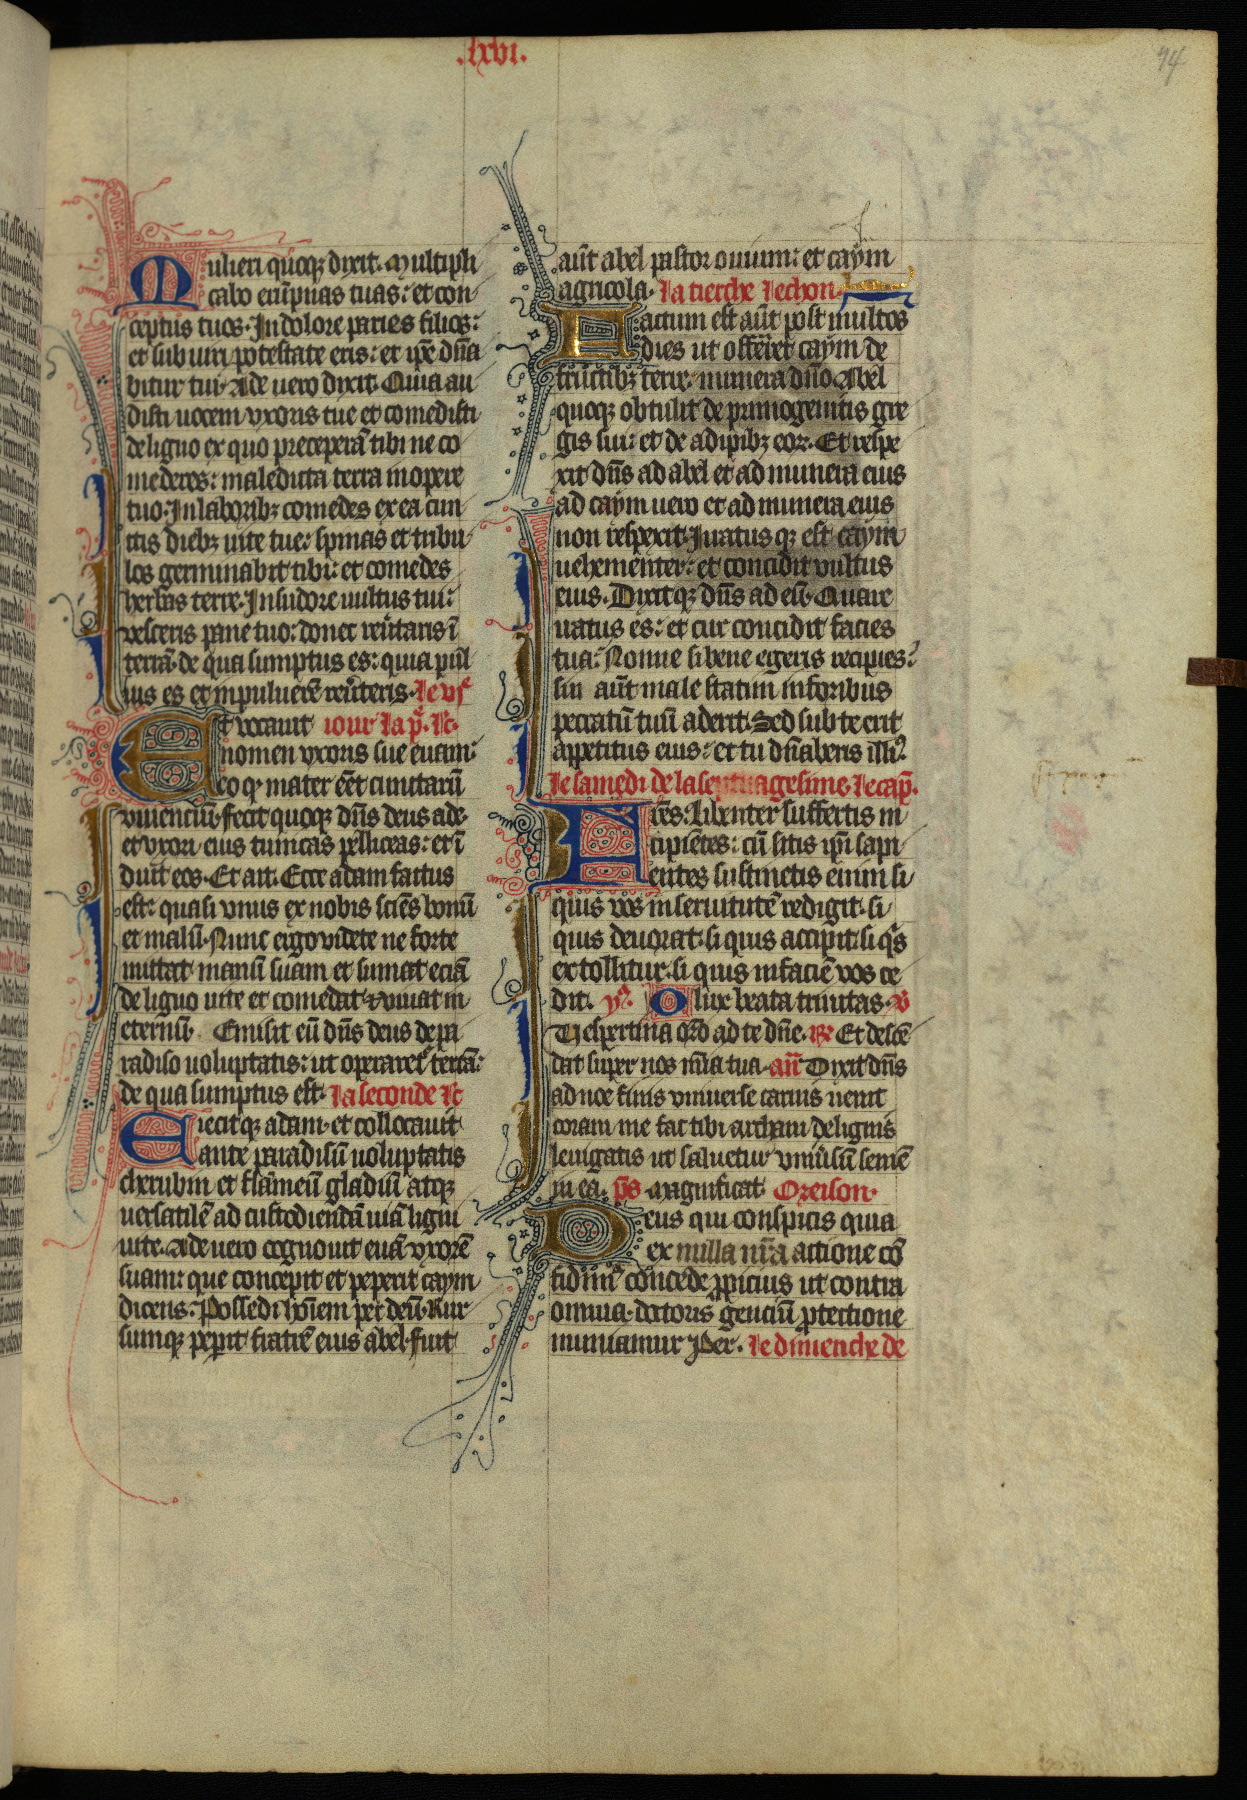 .lxvi.
74
Mulieri quoqȝ dixit. Multipli
cabo erūpnas tuas: et con
ceptus tuos. In dolore paries filios:
et sub uiri potestate eris: et ip̄e dn̄a
bitur tui. Ade uero dixit. Quia au
disti uocem vxoris tue et comedisti
de ligno ex quo preceperā tibi ne co
mederes: maledicta terra in opere
tuo. In laboribȝ comedes ex ea cun
ctis diebȝ uite tue: spinas et tribu
los germinabit tibi: et comedes
herbas terre. In sudore uultus tui:
vesceris pane tuo: donec reūtaris ī
terrā de qua sumptus es: quia pul
uis es et in puluerē reūteris. Le vſ
Et vocauit iour la p̄. lc̄.
nomen vxoris sue euam:
eo qȝ mater eēt cunctarū
viuencium. fecit quoqȝ dn̄s deus ade
et vxori eius tunicas pelliceas: et ī
duit eos. Et ait. Ecce adam factus
est: quasi vnus ex nobis sciēs bonū
et malū. Nunc ergo videte ne forte
mittat manū suam et sumat eciā
de ligno uite et comedat & viuat in
eternū. Emisit eū dn̄s deus de pa
radiso uoluptatis: ut operaret᷑ terrā:
de qua sumptus est. La seconde lc̄
Eiecitqȝ adam. et collocauit
ante paradisū uoluptatis
cherubin et flāmeū gladiū atqȝ
uersatilē ad custodiendā uiā ligni
uite. Ade uero cognouit euā vxorē
suam: que concepit et peperit caym
dicens. Possedi hōīem per deū. Rur
sumqȝ pepit fratrē eius abel. fuit
aūt abel pastor ouium: et caym
agricola. La tierche lechon.
Factum est aūt post multos
dies ut offerret caym de
fructibȝ terre munera dn̄o Abel
quoqȝ obtulit de primogenitis gre
gis sui: et de adipibȝ eoꝝ. Et respe
xit dn̄s ad abel et ad munera eius
ad caym uero et ad munera eius
non respexit. Iratusqȝ est caym
uehementer: et concidit vultus
eius. Dixitqȝ dn̄s ad eū. Quare
iratus es: et cur concidit facies
tua: Nonne si bene egeris recipies:
sin aūt male statim in foribus
peccatū tuū aderit. Sed sub te erit
appetitus eius: et tu dn̄aberis illi᷒.
Le samedi de la septuagesime. le cap̄.
Frēs. Libenter suffertis in
cipiētes: cū sitis ip̄i sapi
entes sustinetis enim si
quis vos in seruitutē redigit. si
quis deuorat. si quis accipit. si qͥs
extollitur. si quis in faciē vos ce
dit. yͫ. O lux beata trinitas. v̄
Vespertina oꝛ̄o ad te dn̄e. R̄ Et descē
dat super nos mīa tua. an̄ Dixit dn̄s
ad noe finis vniuerse carnis uenit
coram me fac tibi archam de lignis
leuigatis ut saluetur vniūsū semē
in ea. p̄s. magnificat. Oreison.
Deus qui conspicis quia
ex nulla nr̄a actione cō
fidimꝰ concede ꝓpicius ut contra
omnia. doctoris genciū ꝓtectione
muniamur Per. Le dimenche de